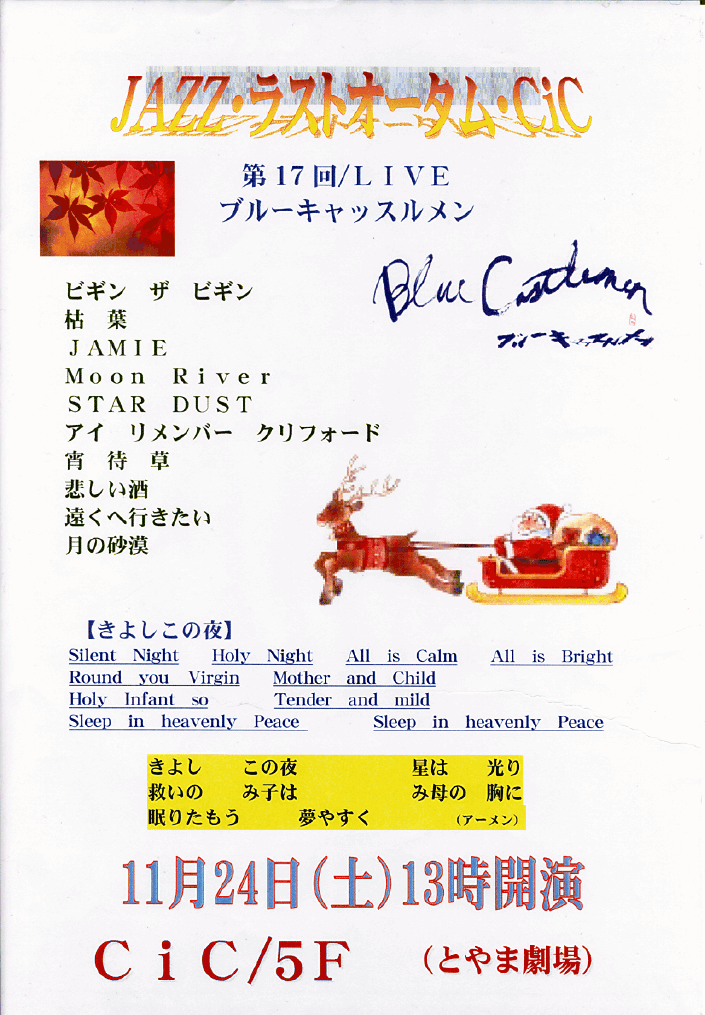 JAZZ・ラストオータム・CiC
第17回/ＬＩＶＥ
ブルーキャッスルメン
Blue Castlemen
ブルーキャッスルメン
ビギン　ザ　ビギン
枯　葉
ＪＡＭＩＥ
Ｍｏｏｎ　Ｒｉｖｅｒ
ＳＴＡＲ　ＤＵＳＴ
アイ　リメンバー　クリフォード
宵　待　草
悲しい酒
遠くへ行きたい
月の砂漠
【きよしこの夜】
Silent Night　Holy Night　All is Calm　All is Bright
Round you Virgin　Mother and Child
Holy Infant so　Tender and mild
Sleep in heavenly Peace　Sleep in heavenly Peace
きよし　この夜　星は　光り
救いの　み子は　み母の　胸に
眠りたもう　夢やすく　（アーメン）
11月24日(土)13時開演
ＣｉＣ/5Ｆ　（とやま劇場）